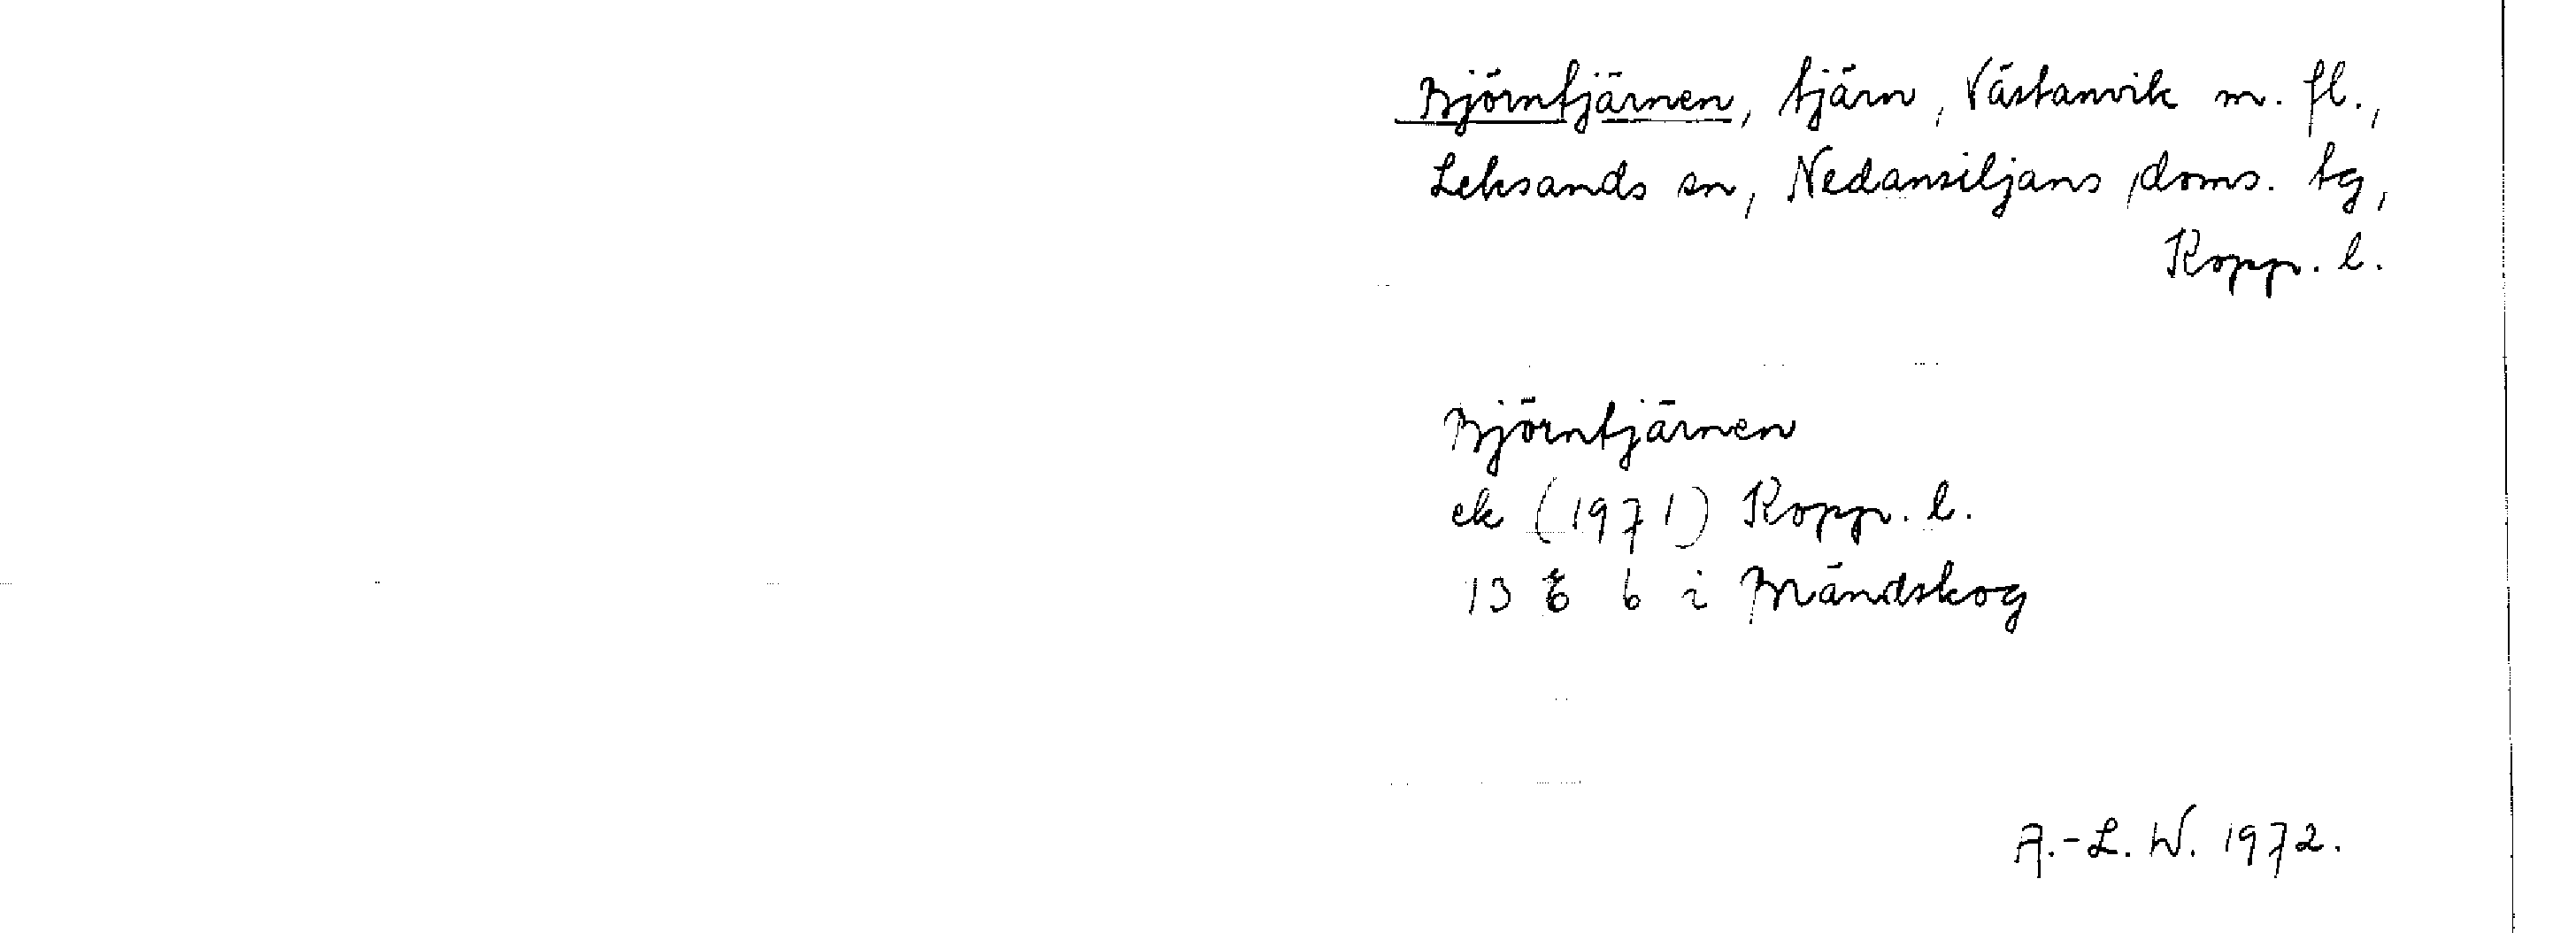 Björntjärnen, tjärn, Västanvik m. fl.,
Leksands sn, Nedansiljans doms. tg,
Kopp. l.
Björntjärnen
ek (1971) Kopp. l.
13 E 6 i Brändskog
A.-L. W. 1972.